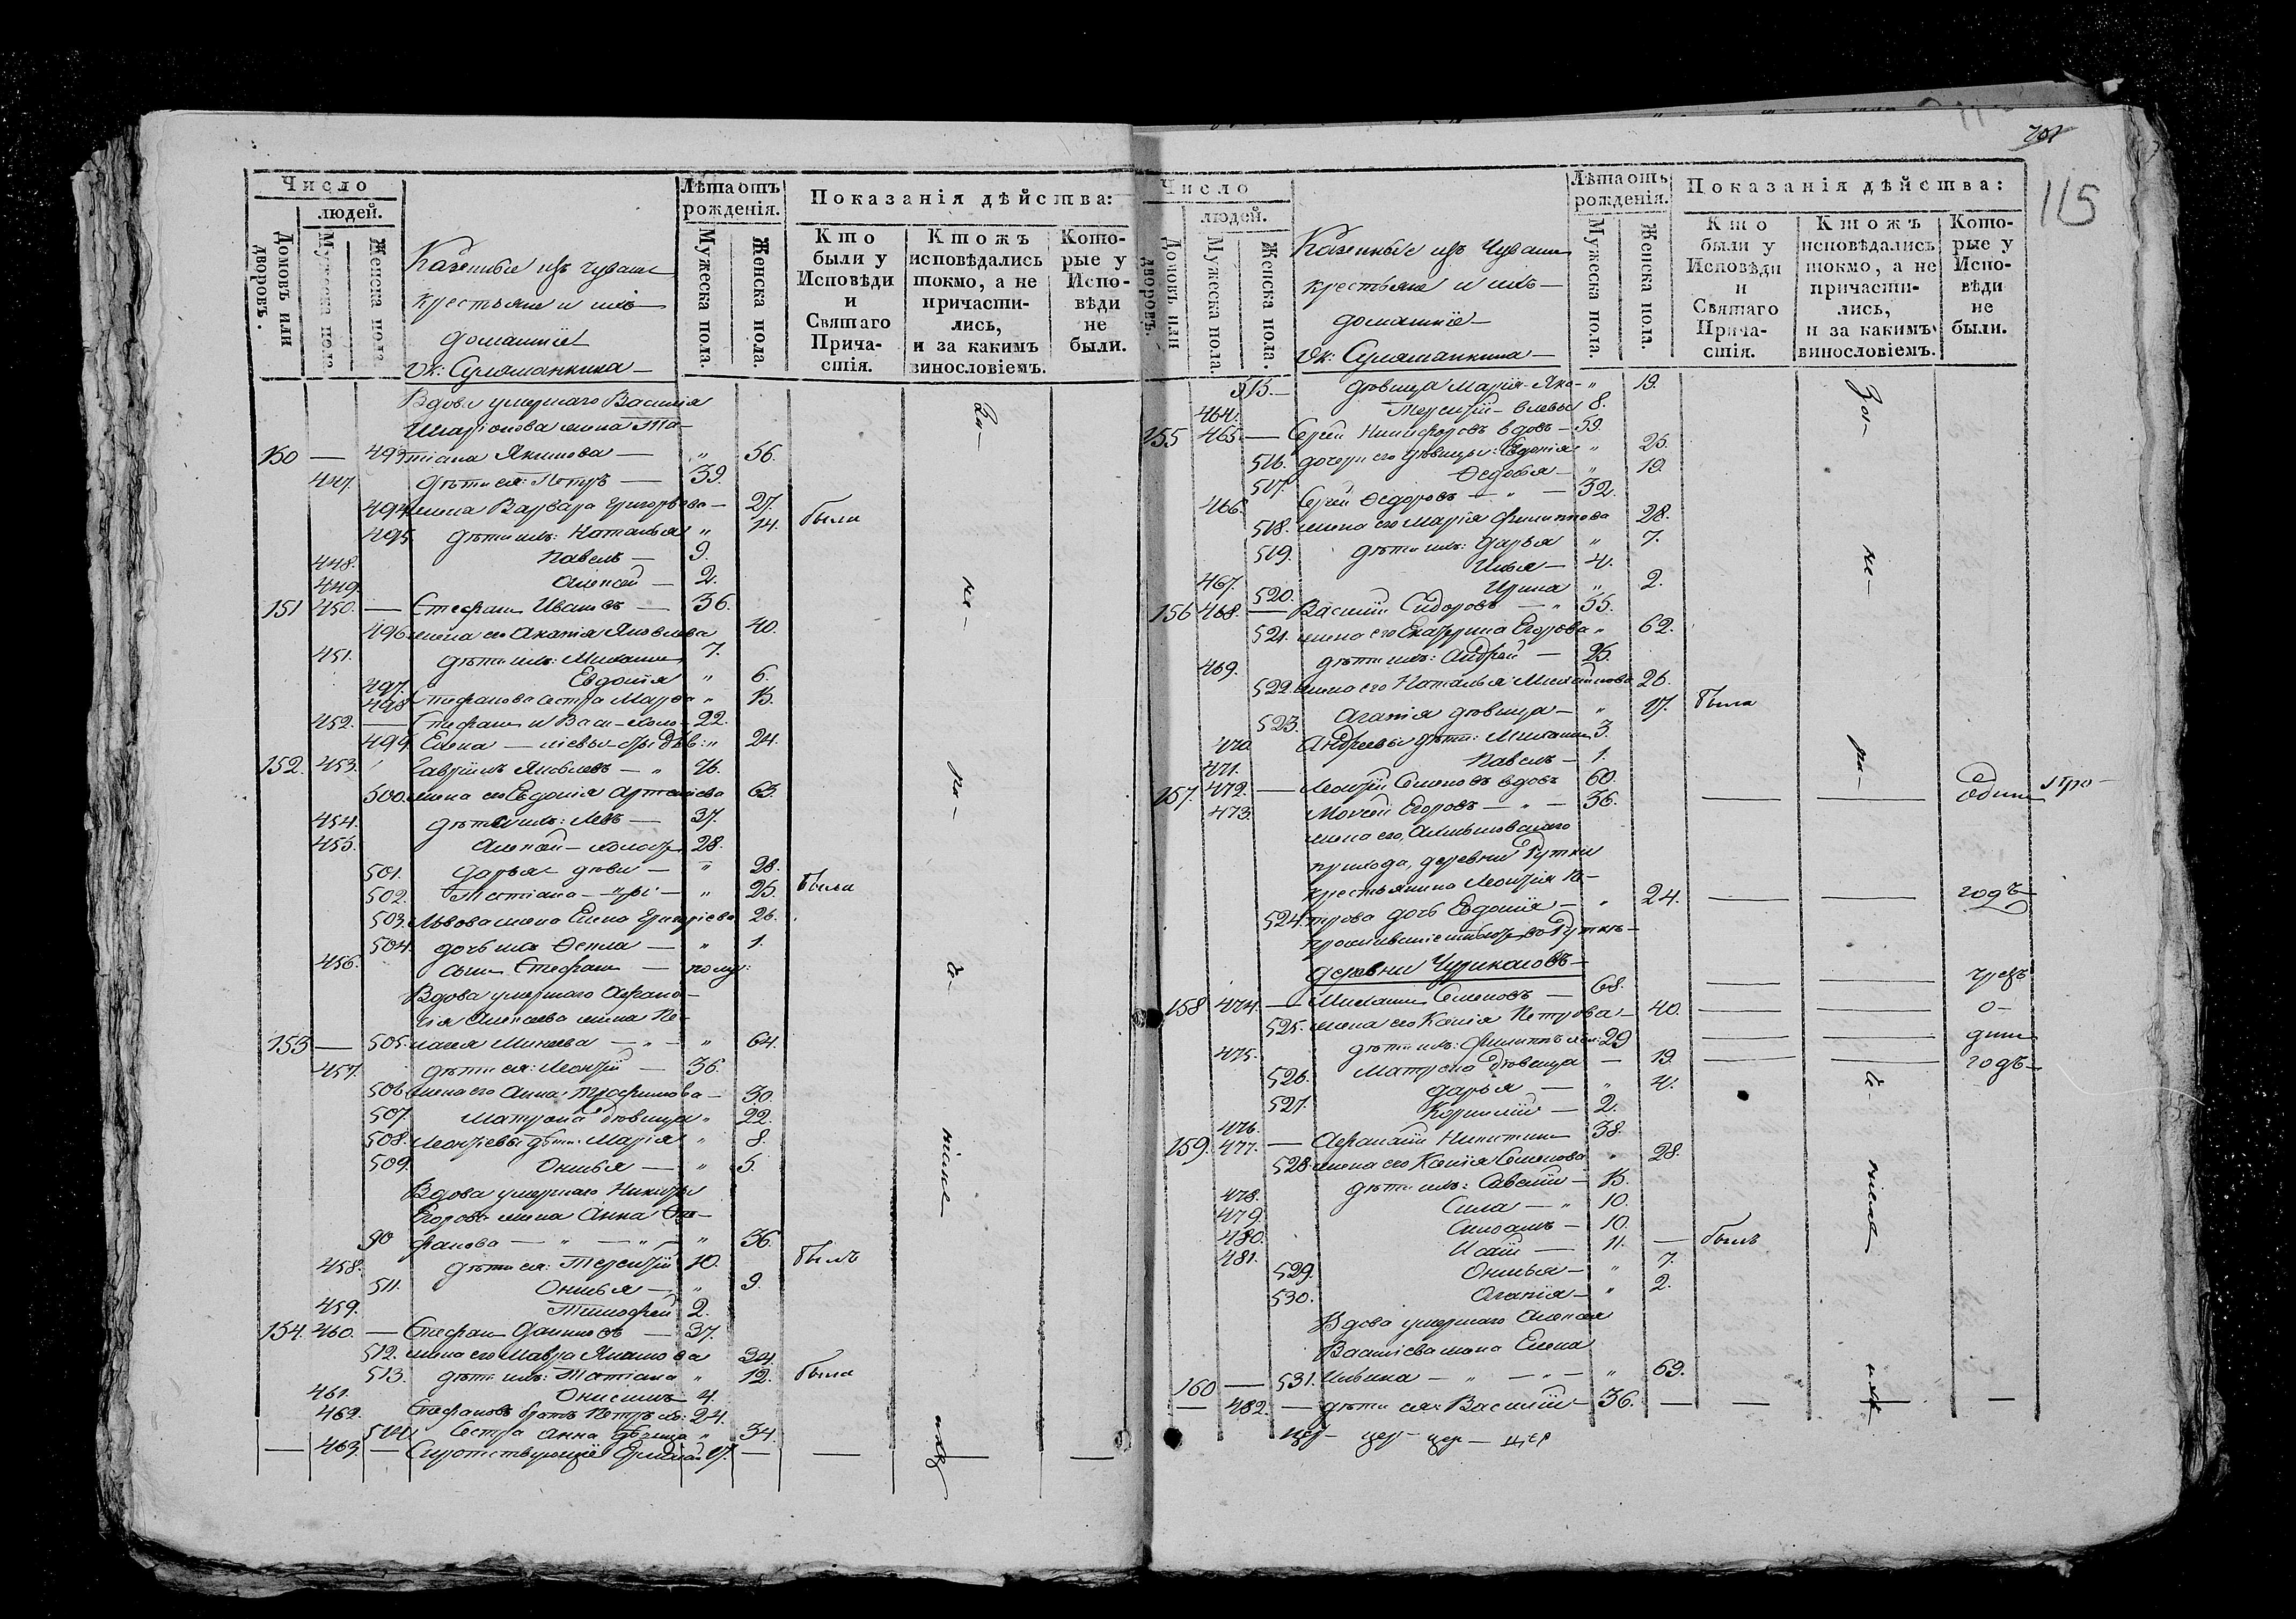 Число
людей.
Домовъ или дворовъ.
Мужеска пола
Женска пола
Казенные изъ чувашъ
крестьяне и ихъ
домашніе
Лѣта отъ рожденія.
Мужеска пола.
Женска пола.
Показанія дѣйства:
Кто были у Исповѣди и Святаго Причастія.
Ктожъ исповѣдались токмо, а не причастились, и за какимъ винословіемъ.
Которые у Исповѣди не были.
Вдова умершаго Василія
Иларіонова жена Та-
150 — 493 тіана Якимова — " 56.
447 дѣти ея: Петръ — 39.
494 жена Варвара Григорьева — 27.
495 дѣти ихъ: Наталья " 14. была
448. Павелъ — 9.
449. Алексей — 2.
151 450. — Стефанъ Ивановъ — 36.
496 жена его Акилина Яковлева 40.
451. дѣти ихъ: Михаилъ 7.
497. Евдокія " 6.
498 Стефанова сестра Марфа " 13.
452. — Стефанъ и Васи- холо- 22.
499. Елена — 24.
152. 453. Гавріилъ Яковлевъ — " 76.
500. жена его Евдокія Артемьева 63.
454. дѣти ихъ: Левъ — 37.
455. Алексей — холост 28.
501. Дарья дѣви — " 28.
502. Татіана — " 25. была
503. Львова жена Елена Григоріева 26.
504. дочь ихъ Фекла — " 1.
456. сынъ Стефанъ — полур:
Вдова умершаго Афана-
сія Алексеева жена Пе-
153 — 505. лагея Минеева — " — " 64.
457. дѣти ея: Леонтій — 36.
506 жена его Анна Трофимова — 30.
507. Матрона дѣвица " 22.
508. Леонтьевы дѣти: Марія " 8.
509. Онисья — " 5.
Вдова умершаго Никиты
Егорова жена Анна Сте-
510 фанова — " — " — " 36.
458. дѣти ея: Терентій 10. былъ
511. Онисья — " 9.
459. Тимофей 2.
154. 460. — Стефанъ Даниловъ — 37.
512. жена его Мавра 34.
513. дѣти ихъ: Татіана " 12. была
461. Онисимъ 4.
462. Стефановъ братъ Петръ хо: 24.
514. Сестра Анна дѣвица " 34.
— 463. — Сиротствующій 17. — —
За-
не-
ра-
че-
ніемъ
115
Число
людей.
Домовъ или дворовъ.
Мужеска пола.
Женска пола.
Казенные изъ Чувашъ
крестьяне и ихъ
домашніе
Лѣта отъ рожденія.
Мужеска пола.
Женска пола.
Показанія дѣйства:
Кто были у Исповѣди и Святаго Причастія.
Ктожъ исповѣдались токмо, а не причастились, и за какимъ винословіемъ.
Которые у Исповѣди не были.
515. — дѣвица Марія Яко- " 19.
464. Терентій — влевы 8.
155 465. — Сергей Никифоровъ вдовъ — 59.
516. дочери его дѣвицы: Евдокія " 25.
517. Федосья — " 19.
466. Сергей Федоровъ — " — 32.
518. жена его Марія Филиппова 28.
519. дѣти ихъ: Дарья " 7.
467. Илья — 4.
520. Ирина " 2.
156 468. — Василій Сидоровъ — " 55.
521. жена его Екатерина Егорова " 62.
469. дѣти ихъ: Андрей — 25.
522. жена его Наталья Михайлова 26.
523. Агапія дѣвица — " 17. была
470 Андреевы дѣти: Михаилъ 3.
471. Павелъ — 1.
157. 472. — Леонтій Семеновъ вдовъ 60.
473. Моисей Егоровъ — " — 36. — — Одинъ
жена его,
прихода, деревни Тутки
крестьянина Леонтія Пе-
524. трова дочь Евдокія — " 24. — — годъ
деревни Чурикасовъ —
158 474. — Михаилъ Семеновъ — 68. — —
525. жена его Ксенія Петрова — 40. — — о-
475. дѣти ихъ: Филиппъ 29 — — динъ
526. Матрона дѣвица — 19. — — годъ
527. Дарья — " 4.
476. Корнилій — 2.
159. 477. — Афанасій Никитинъ 38.
528. жена его Ксенія Семенова " 28.
478. дѣти ихъ: Савелій — 13.
479. Сила — " 10.
480. 10.
481. Исаій — 11. — былъ
529. Онисья — " 7.
530. Агапія — " 2.
Вдова умершаго Алексея
Василіева жена Елена
160 — 531. Ильина — " — " — " 69.
— 482. — дѣти ея: Василій 36. — — —
За-
не-
ра-
че-
ніемъ